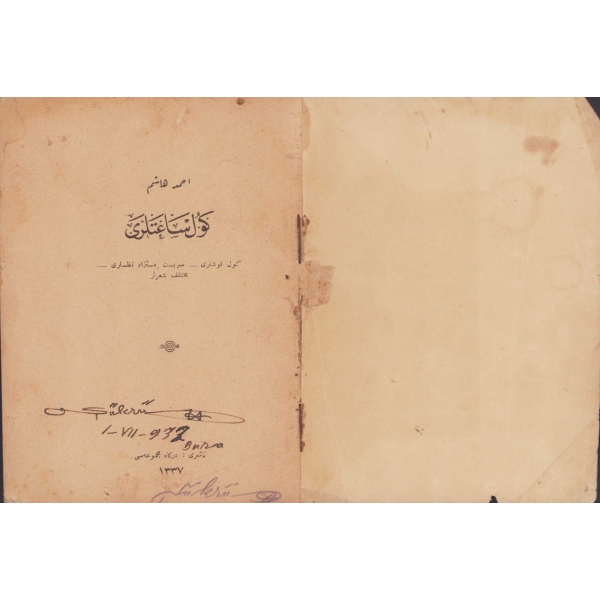 احمد هاشم
كول ساعتلری
كول قوشلری — سربست مستزاد نظملری —
مختلف شعرلر
Şükrü
1-VII-932
Bursa
ناشری : درگاه مجموعه‌سی
١٣٣٧
Şükrü